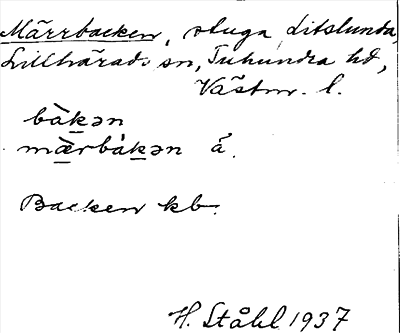 Märrbacken, stuga Litslunda,
Lillhärads sn, Tuhundra hd,
Västm. l.
bàkən
mæ̀rbàkən å.
Backen kb.
H. Ståhl 1937